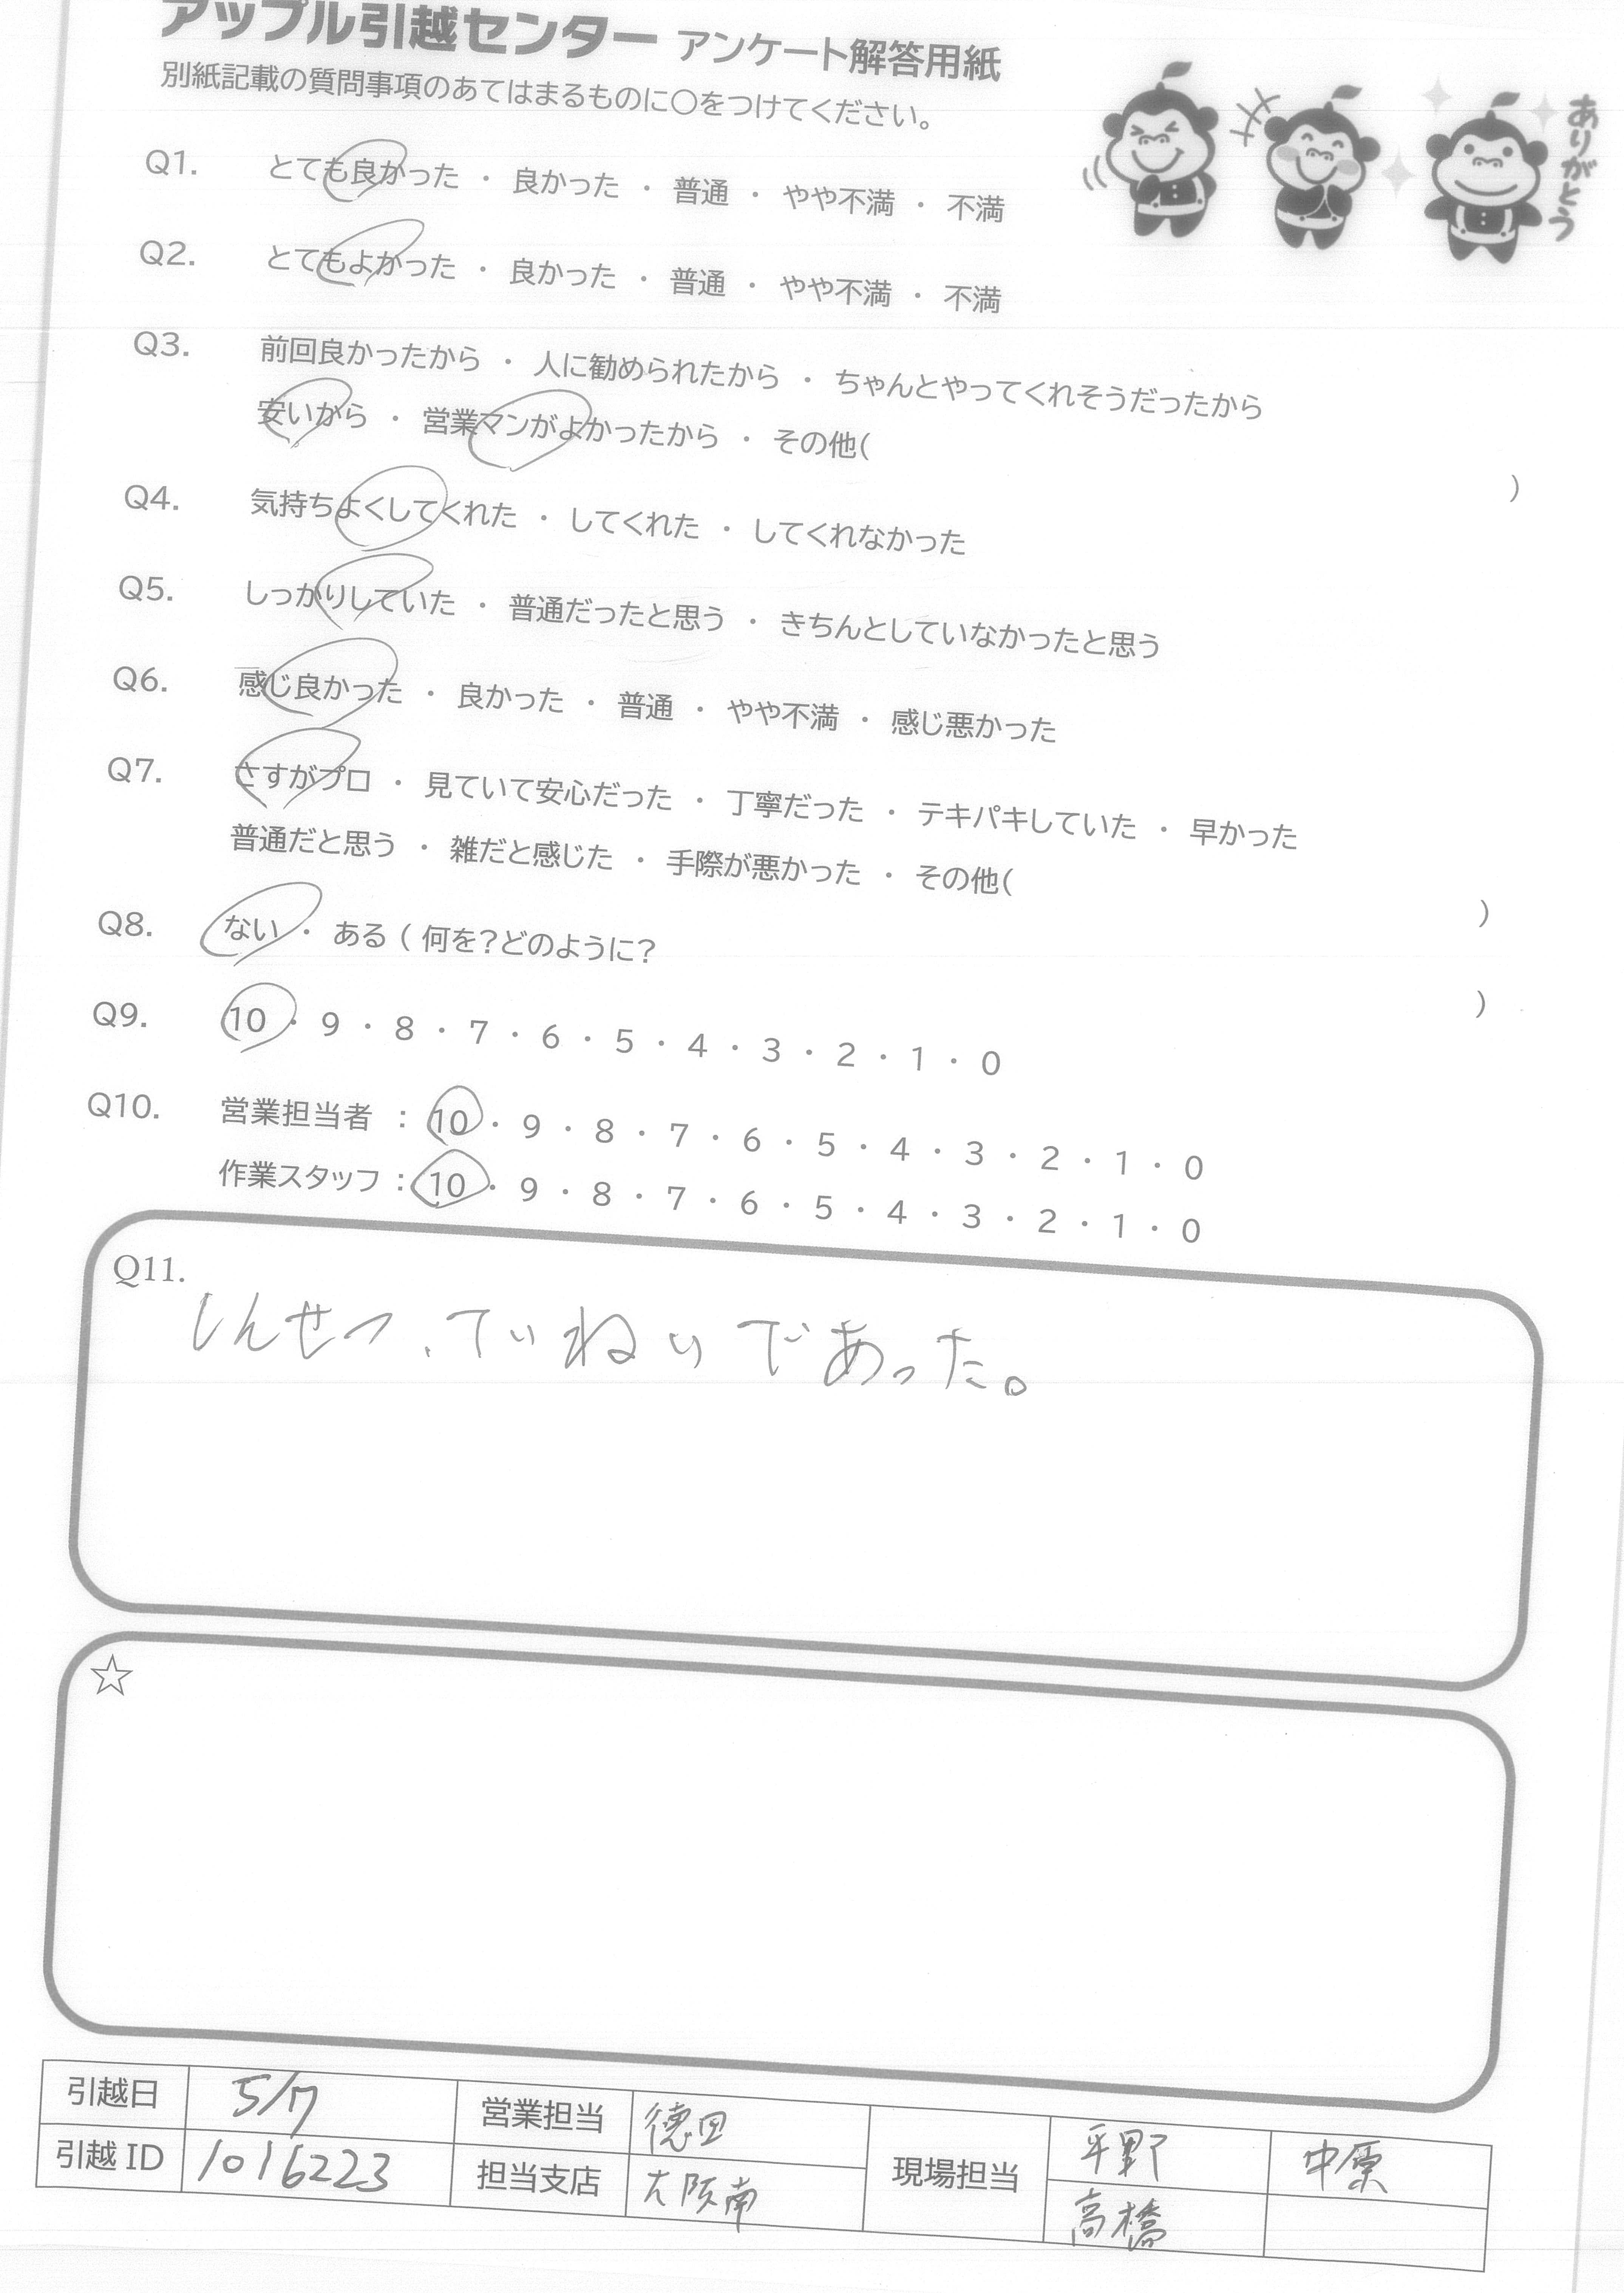 アップル引越センター アンケート解答用紙
別紙記載の質問事項のあてはまるものに○をつけてください。
ありがとう
Q1. とても良かった ・ 良かった ・ 普通 ・ やや不満 ・ 不満
Q2. とてもよかった ・ 良かった ・ 普通 ・ やや不満 ・ 不満
Q3. 前回良かったから ・ 人に勧められたから ・ ちゃんとやってくれそうだったから
安いから ・ 営業マンがよかったから ・ その他( )
Q4. 気持ちよくしてくれた ・ してくれた ・ してくれなかった
Q5. しっかりしていた ・ 普通だったと思う ・ きちんとしていなかったと思う
Q6. 感じ良かった ・ 良かった ・ 普通 ・ やや不満 ・ 感じ悪かった
Q7. さすがプロ ・ 見ていて安心だった ・ 丁寧だった ・ テキパキしていた ・ 早かった
普通だと思う ・ 雑だと感じた ・ 手際が悪かった ・ その他( )
Q8. ない ・ ある ( 何を?どのように? )
Q9. 10 ・ 9 ・ 8 ・ 7 ・ 6 ・ 5 ・ 4 ・ 3 ・ 2 ・ 1 ・ 0
Q10. 営業担当者 : 10 ・ 9 ・ 8 ・ 7 ・ 6 ・ 5 ・ 4 ・ 3 ・ 2 ・ 1 ・ 0
作業スタッフ : 10 ・ 9 ・ 8 ・ 7 ・ 6 ・ 5 ・ 4 ・ 3 ・ 2 ・ 1 ・ 0
Q11.
しんせつ、ていねいであった。
☆
引越日 5/7 営業担当 徳田 現場担当 平野 中原
引越 ID 1016223 担当支店 大阪南 高橋